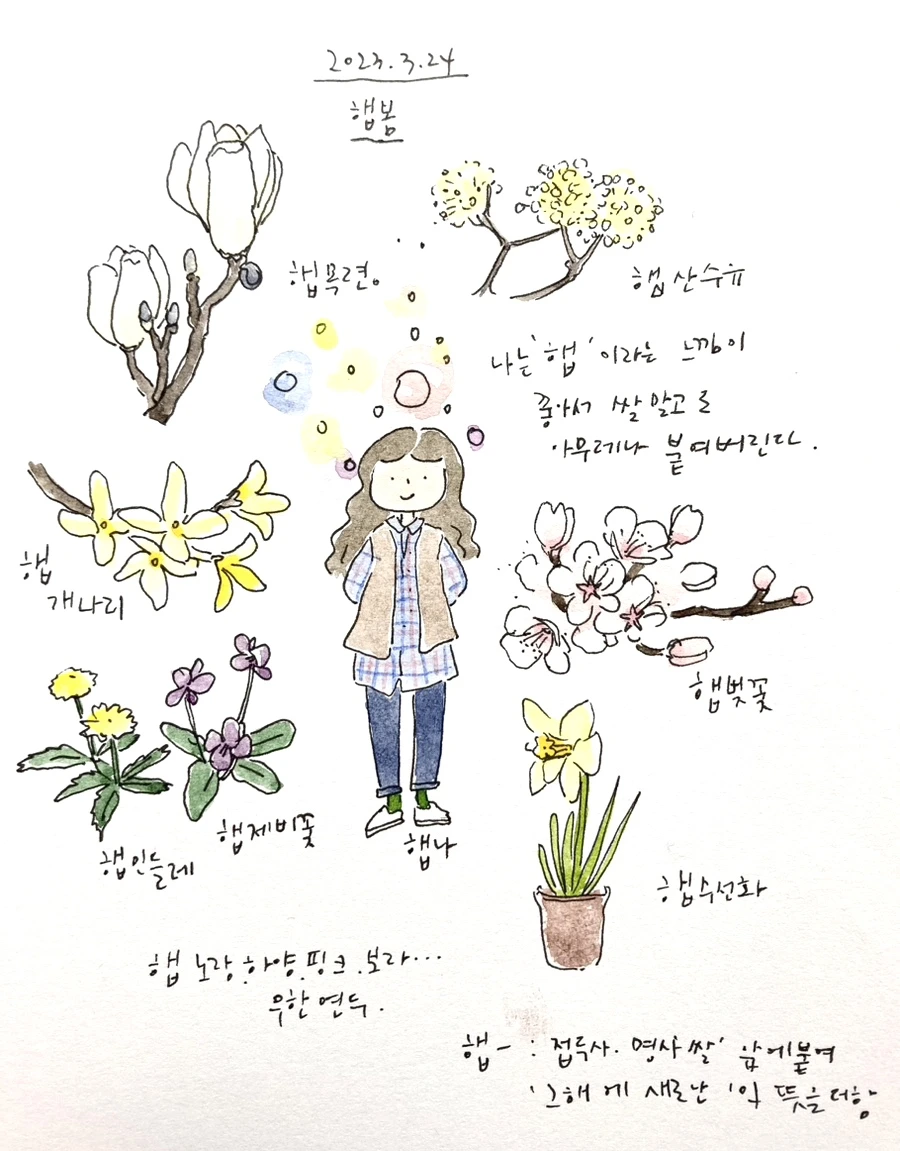 2023.3.24
햅봄
햅목련.
햅산수유
나는 '햅' 이라는 느낌이
좋아서 쌀 말고도
아무레나 붙여버린다.
햅
개나리
햅벚꽃
햅제비꽃
햅인들레
햅나
햅수선화
햅 노랑.하양.핑크.보라...
무한 연두.
햅- : 접두사. 명사 쌀' 앞에붙여
'그해에 새로난'의 뜻을더함